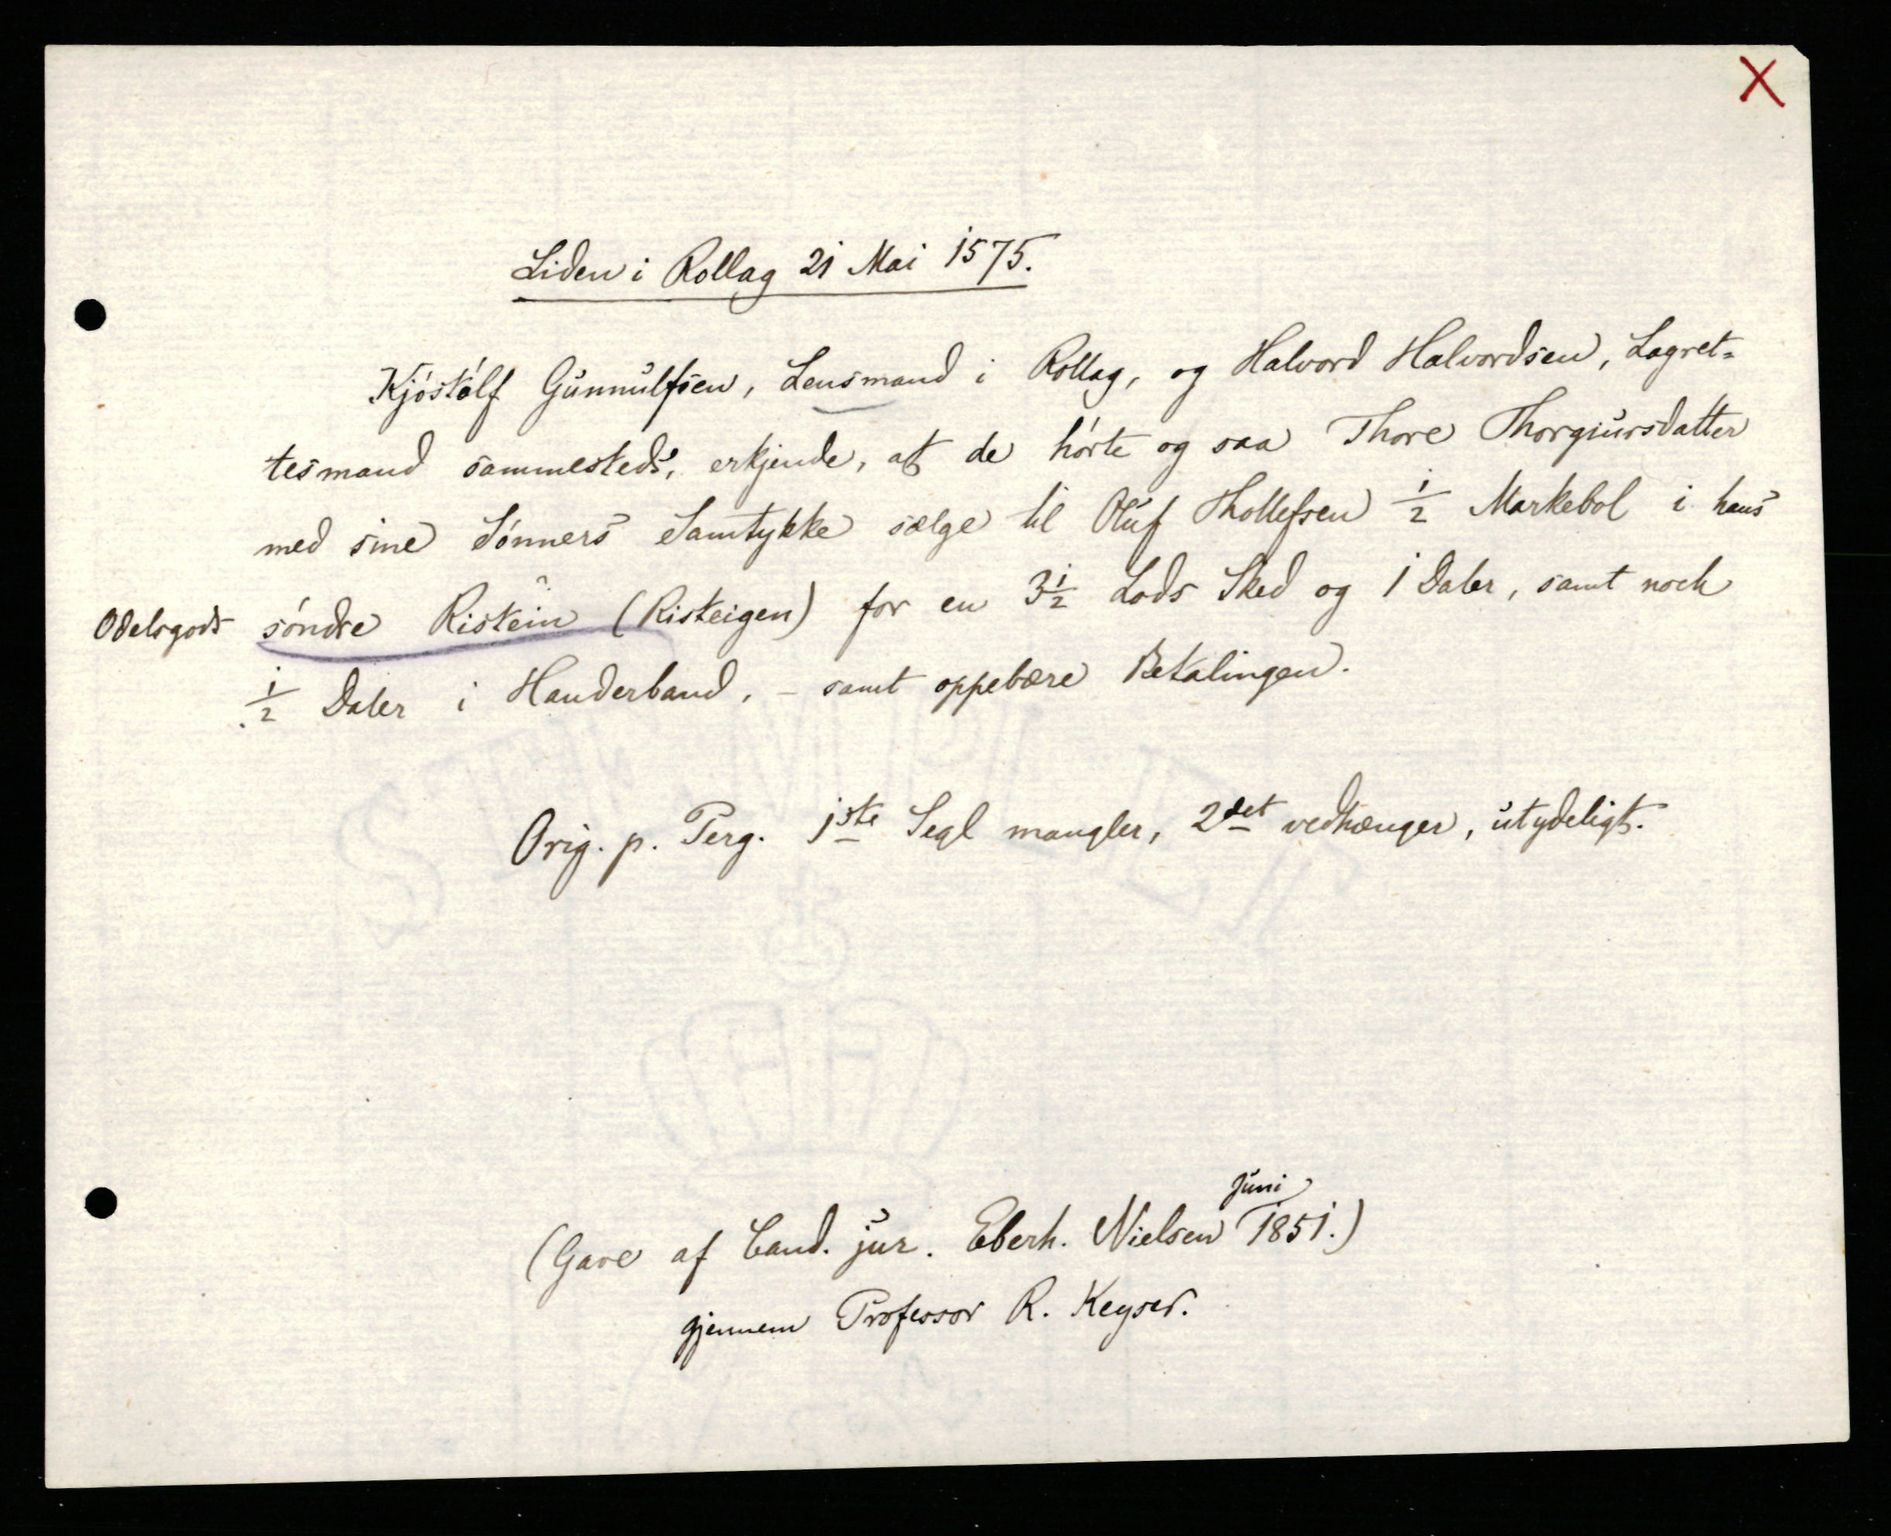 X
Liden i Rollag 21 Mai 1575.
Kjóstólf Gunnulfsen, Lensmand i Rollag, og Halvord Halvordsen, Lagret=
tesmand sammesteds, erkjende, at de hórte og saa Thore Thorgiursdatter
med sine Sónners Samtykke sælge til Oluf Thollefsen ½ Markebol i hans
Odelsgods sóndre Ristein (Risteigen) for en 3½ Lods Sked og 1 Daler, samt noch
½ Daler i Handerband, – samt oppebære Betalingen.
Orig. p. Perg. 1ste Segl mangler, 2det vedhænger, utydeligt.
Juni
(Gave af Cand. jur. Eberh. Nielsen 1851.)
gjennem Professor R. Keyser.